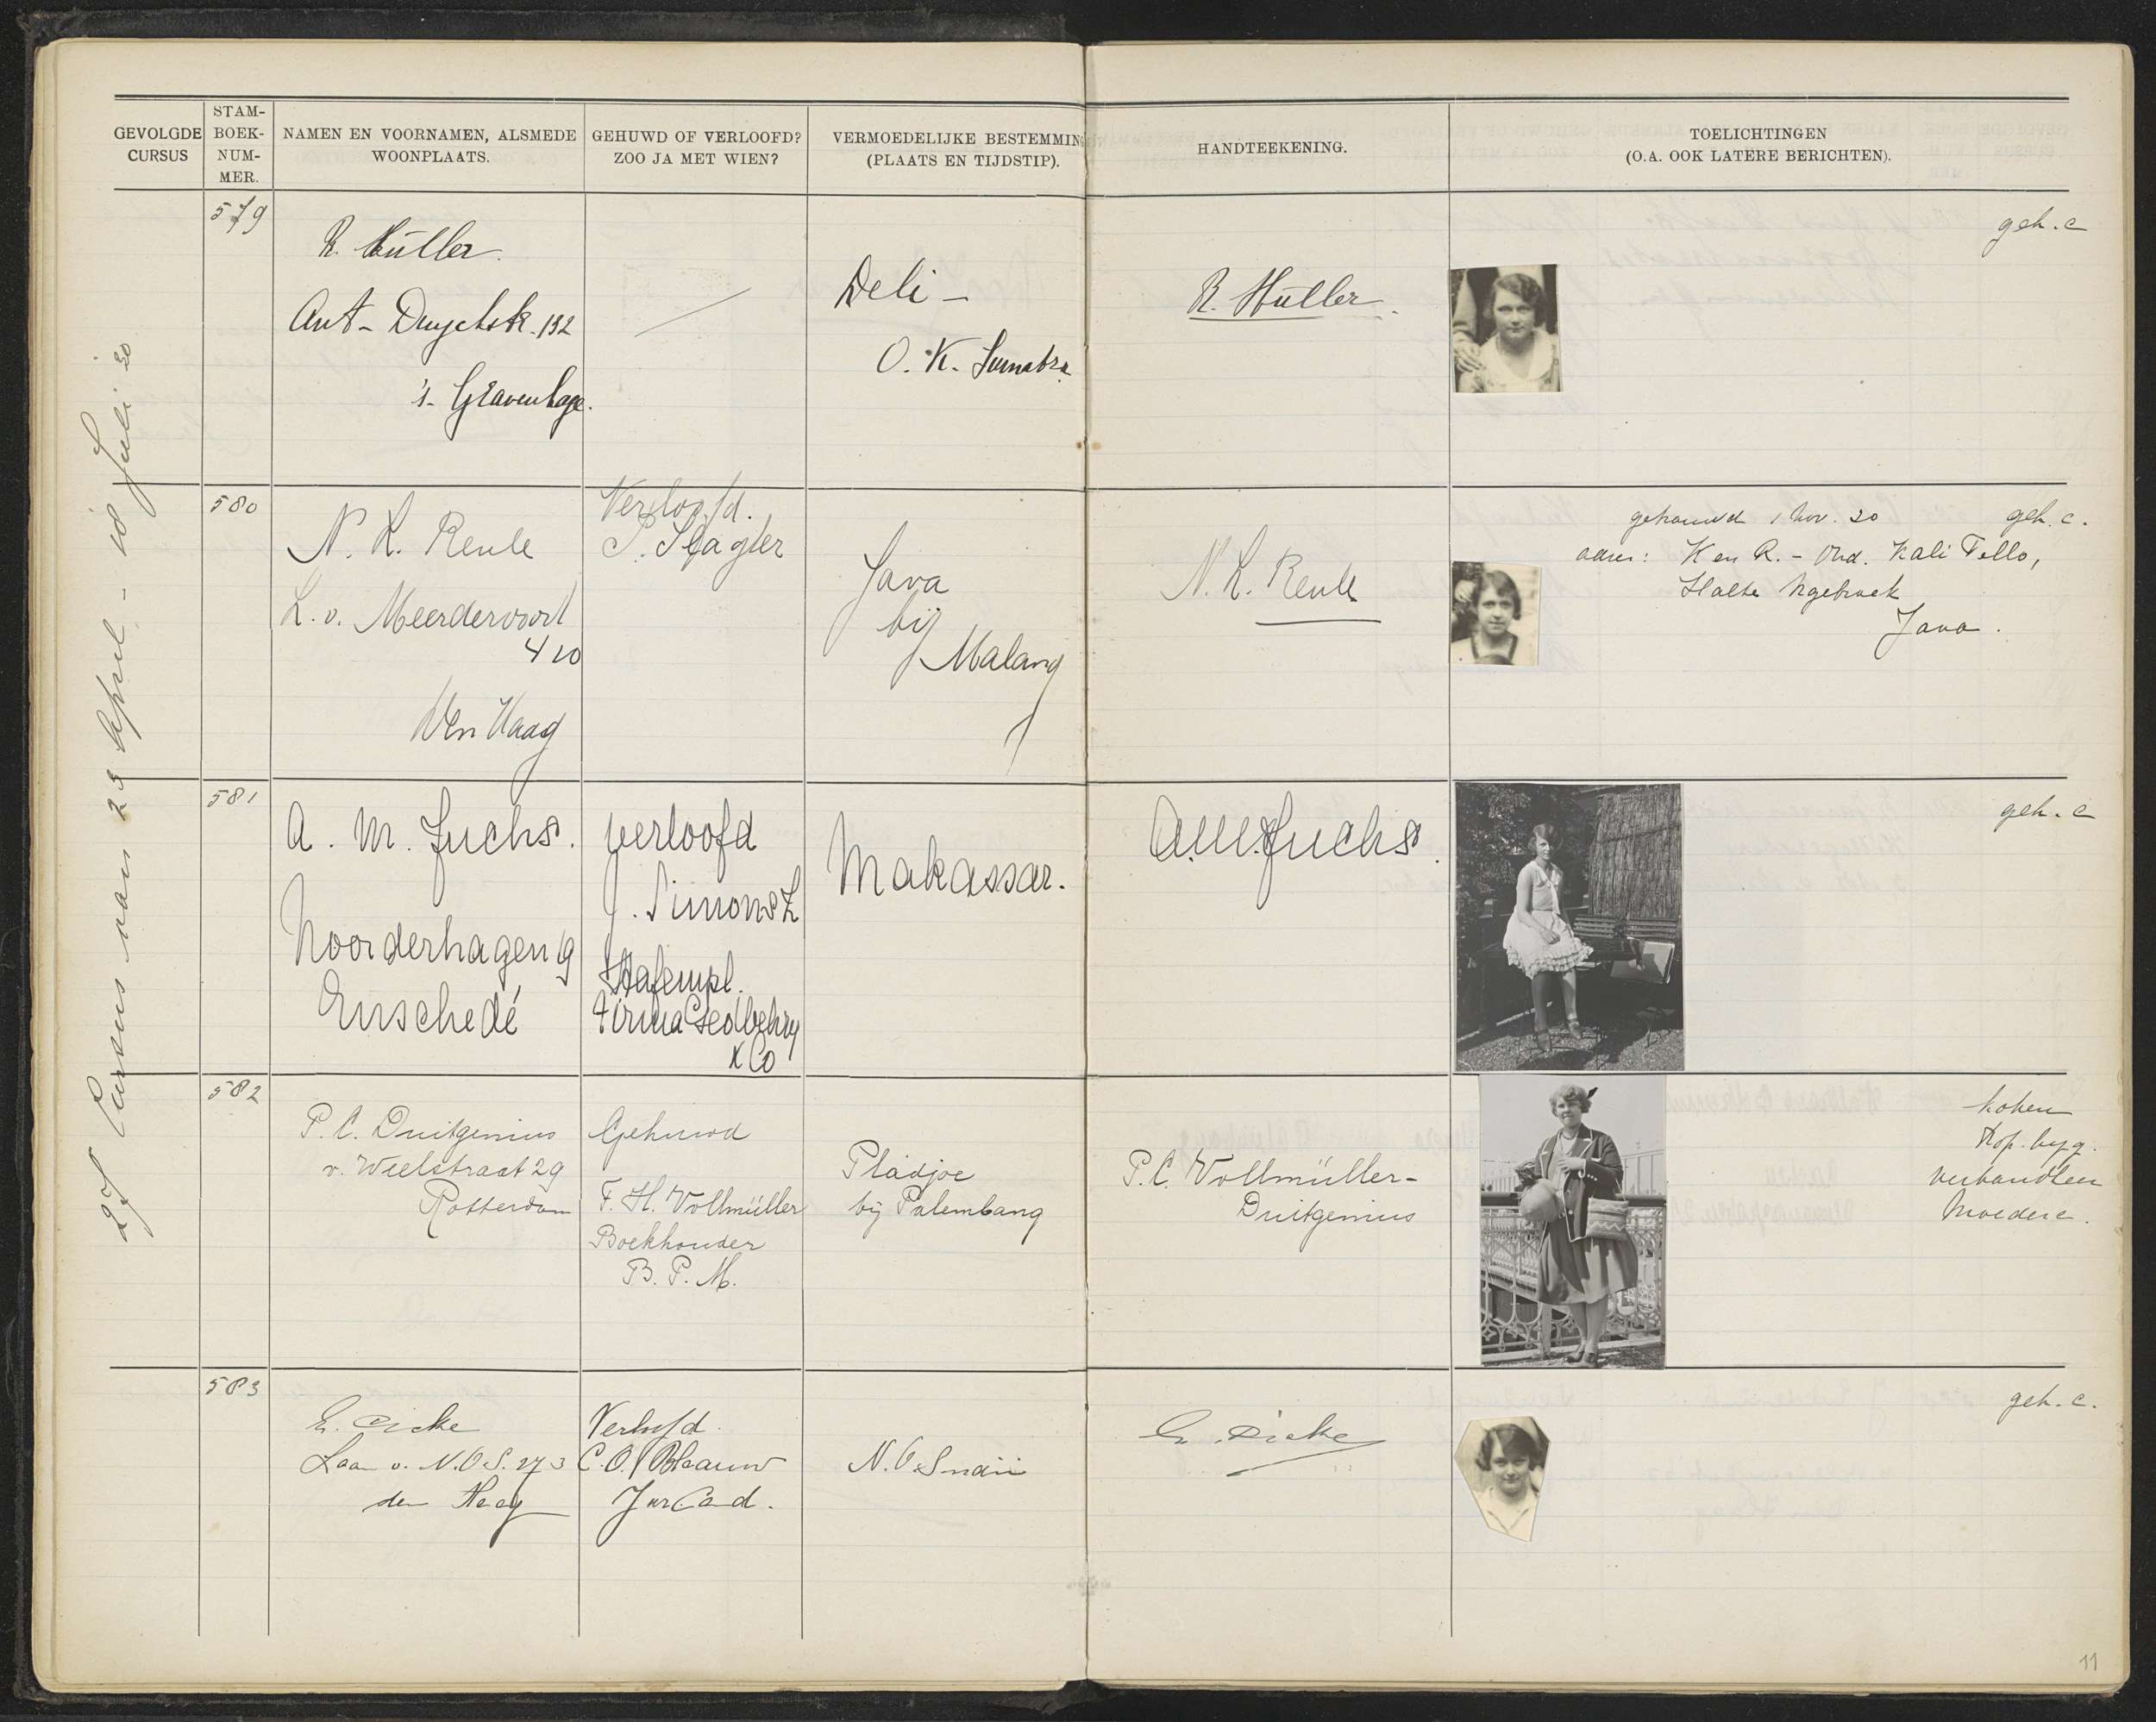 GEVOLGDE CURSUS
STAM-BOEK-NUM-MER.
NAMEN EN VOORNAMEN, ALSMEDE WOONPLAATS.
GEHUWD OF VERLOOFD? ZOO JA MET WIEN?
VERMOEDELIJKE BESTEMMING (PLAATS EN TIJDSTIP).
HANDTEEKENING.
TOELICHTINGEN
(O.A. OOK LATERE BERICHTEN).
27 Cursus van 23 April - 18 Juli 30
579
R. Hüller.
Ant- Duyckstr. 192
's- Gravenhage.
Deli -
O. K. Sumatra
R. Hüller.
geh. c
580
N. L. Reule
L. v. Meerdervoort
410
Den Haag
Verloofd.
Java
bij
Malang
N. L. Reule
getrouwd 1 Nov. 30
geh. c.
adres: K en R. - Ond. Kali Tello,
Halte Ngebruk
Java.
581
A. M. Fuchs.
Noorderhagen 19
Enschedé
verloofd
J. Simonsz
Stafempl.
firma Geo Wehry
& Co
Makassar.
A.M. Fuchs.
geh. c
582
P. C. Duitgenius
v. Weelstraat 29
Rotterdam
Gehuwd
F. H. Vollmüller
Boekhouder
B. P. M.
Pladjoe
bij Palembang
P. C. Vollmüller-
Duitgenius
koken
trop. hyg.
verbandleer
Moederc.
583
E. Dicke
Laan v. N.O.I. 273
den Haag
Verloofd
C. O. Blaauw
Jur Cand.
N. O Indië
E. Dicke
geh. c.
11